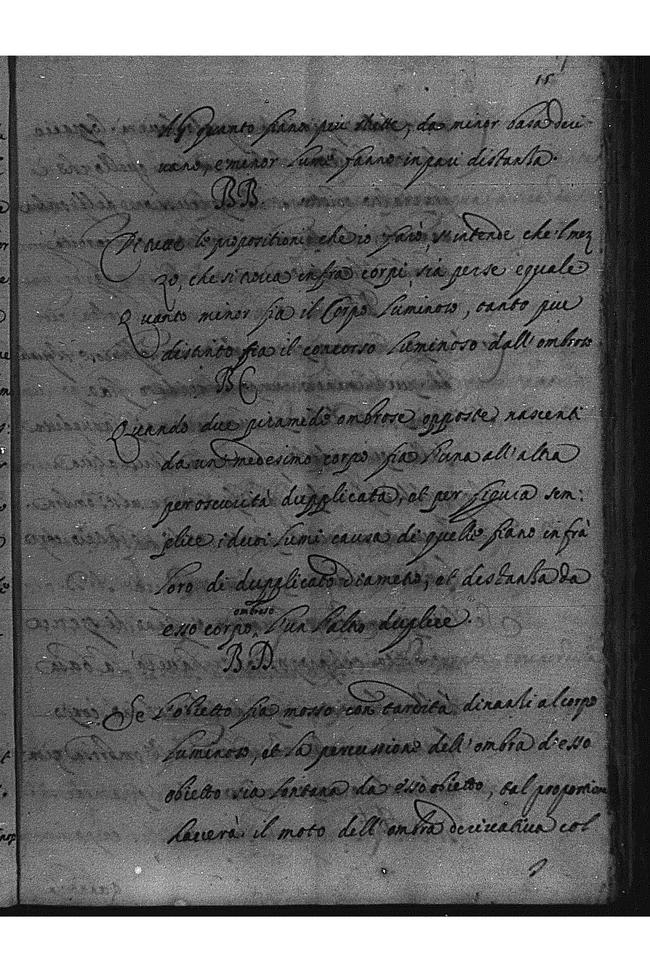 15
quanto siano più strette, da minor basa deri-
vano, e minor lume fanno in pari distanza.
BB.
Di tutte le propositioni che io farò, s'intende che'l mez
zo, che si trova infra corpi, sia per se equale
Quanto minor fia il Corpo luminoso, tanto più
distinto fia il concorso luminoso dall'ombroso
BC
Quando due piramide ombrose opposte nascenti
da un medesimo corpo fia l'una all'altra
per oscurità dupplicata, et per figura sem:
plice i duoi lumi causa di quelle siano infrà
loro di dupplicato diametro, et distanza da
esso corpo ombroso l'un l'altro duplice.
BD.
Se l'obietto sia mosso con tardità dinanzi al corpo
luminoso, et la percussione dell'ombra d'esso
obietto sia lontana da esso obietto, tal proportion
haverà il moto dell'ombra derivativa col